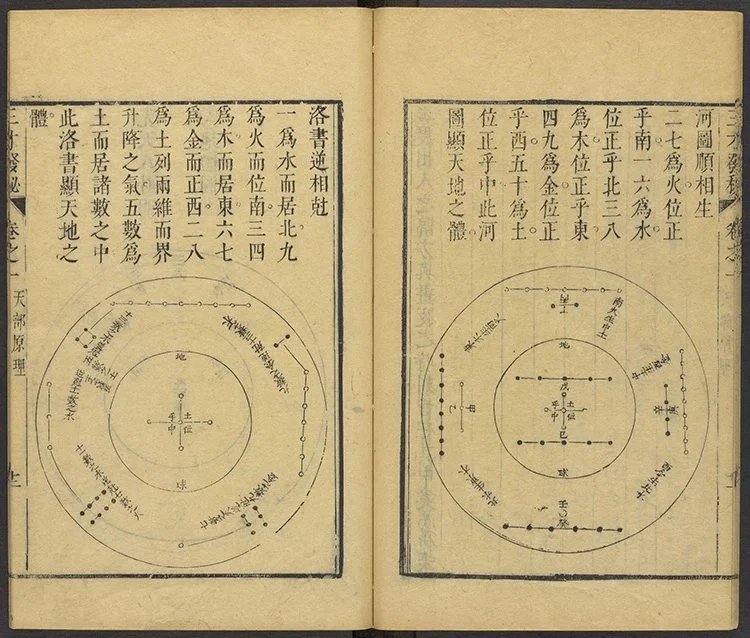 河圖順相生
二七爲火位正
乎南一六爲水
位正乎北三八
爲木位正乎東
四九爲金位正
乎西五十爲土
位正乎中此河
圖顯天地之體
南火生中土
地
戊
土位
乎中
己
球
壬癸
洛書逆相尅
一爲水而居北九
爲火而位南三四
爲木而居東六七
爲金而正西二八
爲土列兩維而界
升降之氣五數爲
土而居諸數之中
此洛書顯天地之
體
地
土位
乎中
球
三才發秘 卷之一 天部原理